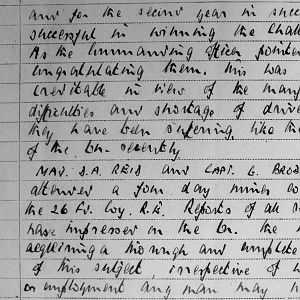 and for the second year in succ
successful in winning the Chall
As the Commanding Officer pointed
congratulating them. This was
creditable in view of the many
difficulties and shortage of drive
they have been suffering, like the
of the Bn. recently.
MAJ. S.A. REIS and CAPT. G. BROW
attended a four day mines co
the 26 Fd. Coy. R.E. Reports of all
have impressed on the Bn. the
acquiring a thorough and complete
of this subject, irrespective of
or employment any man may h